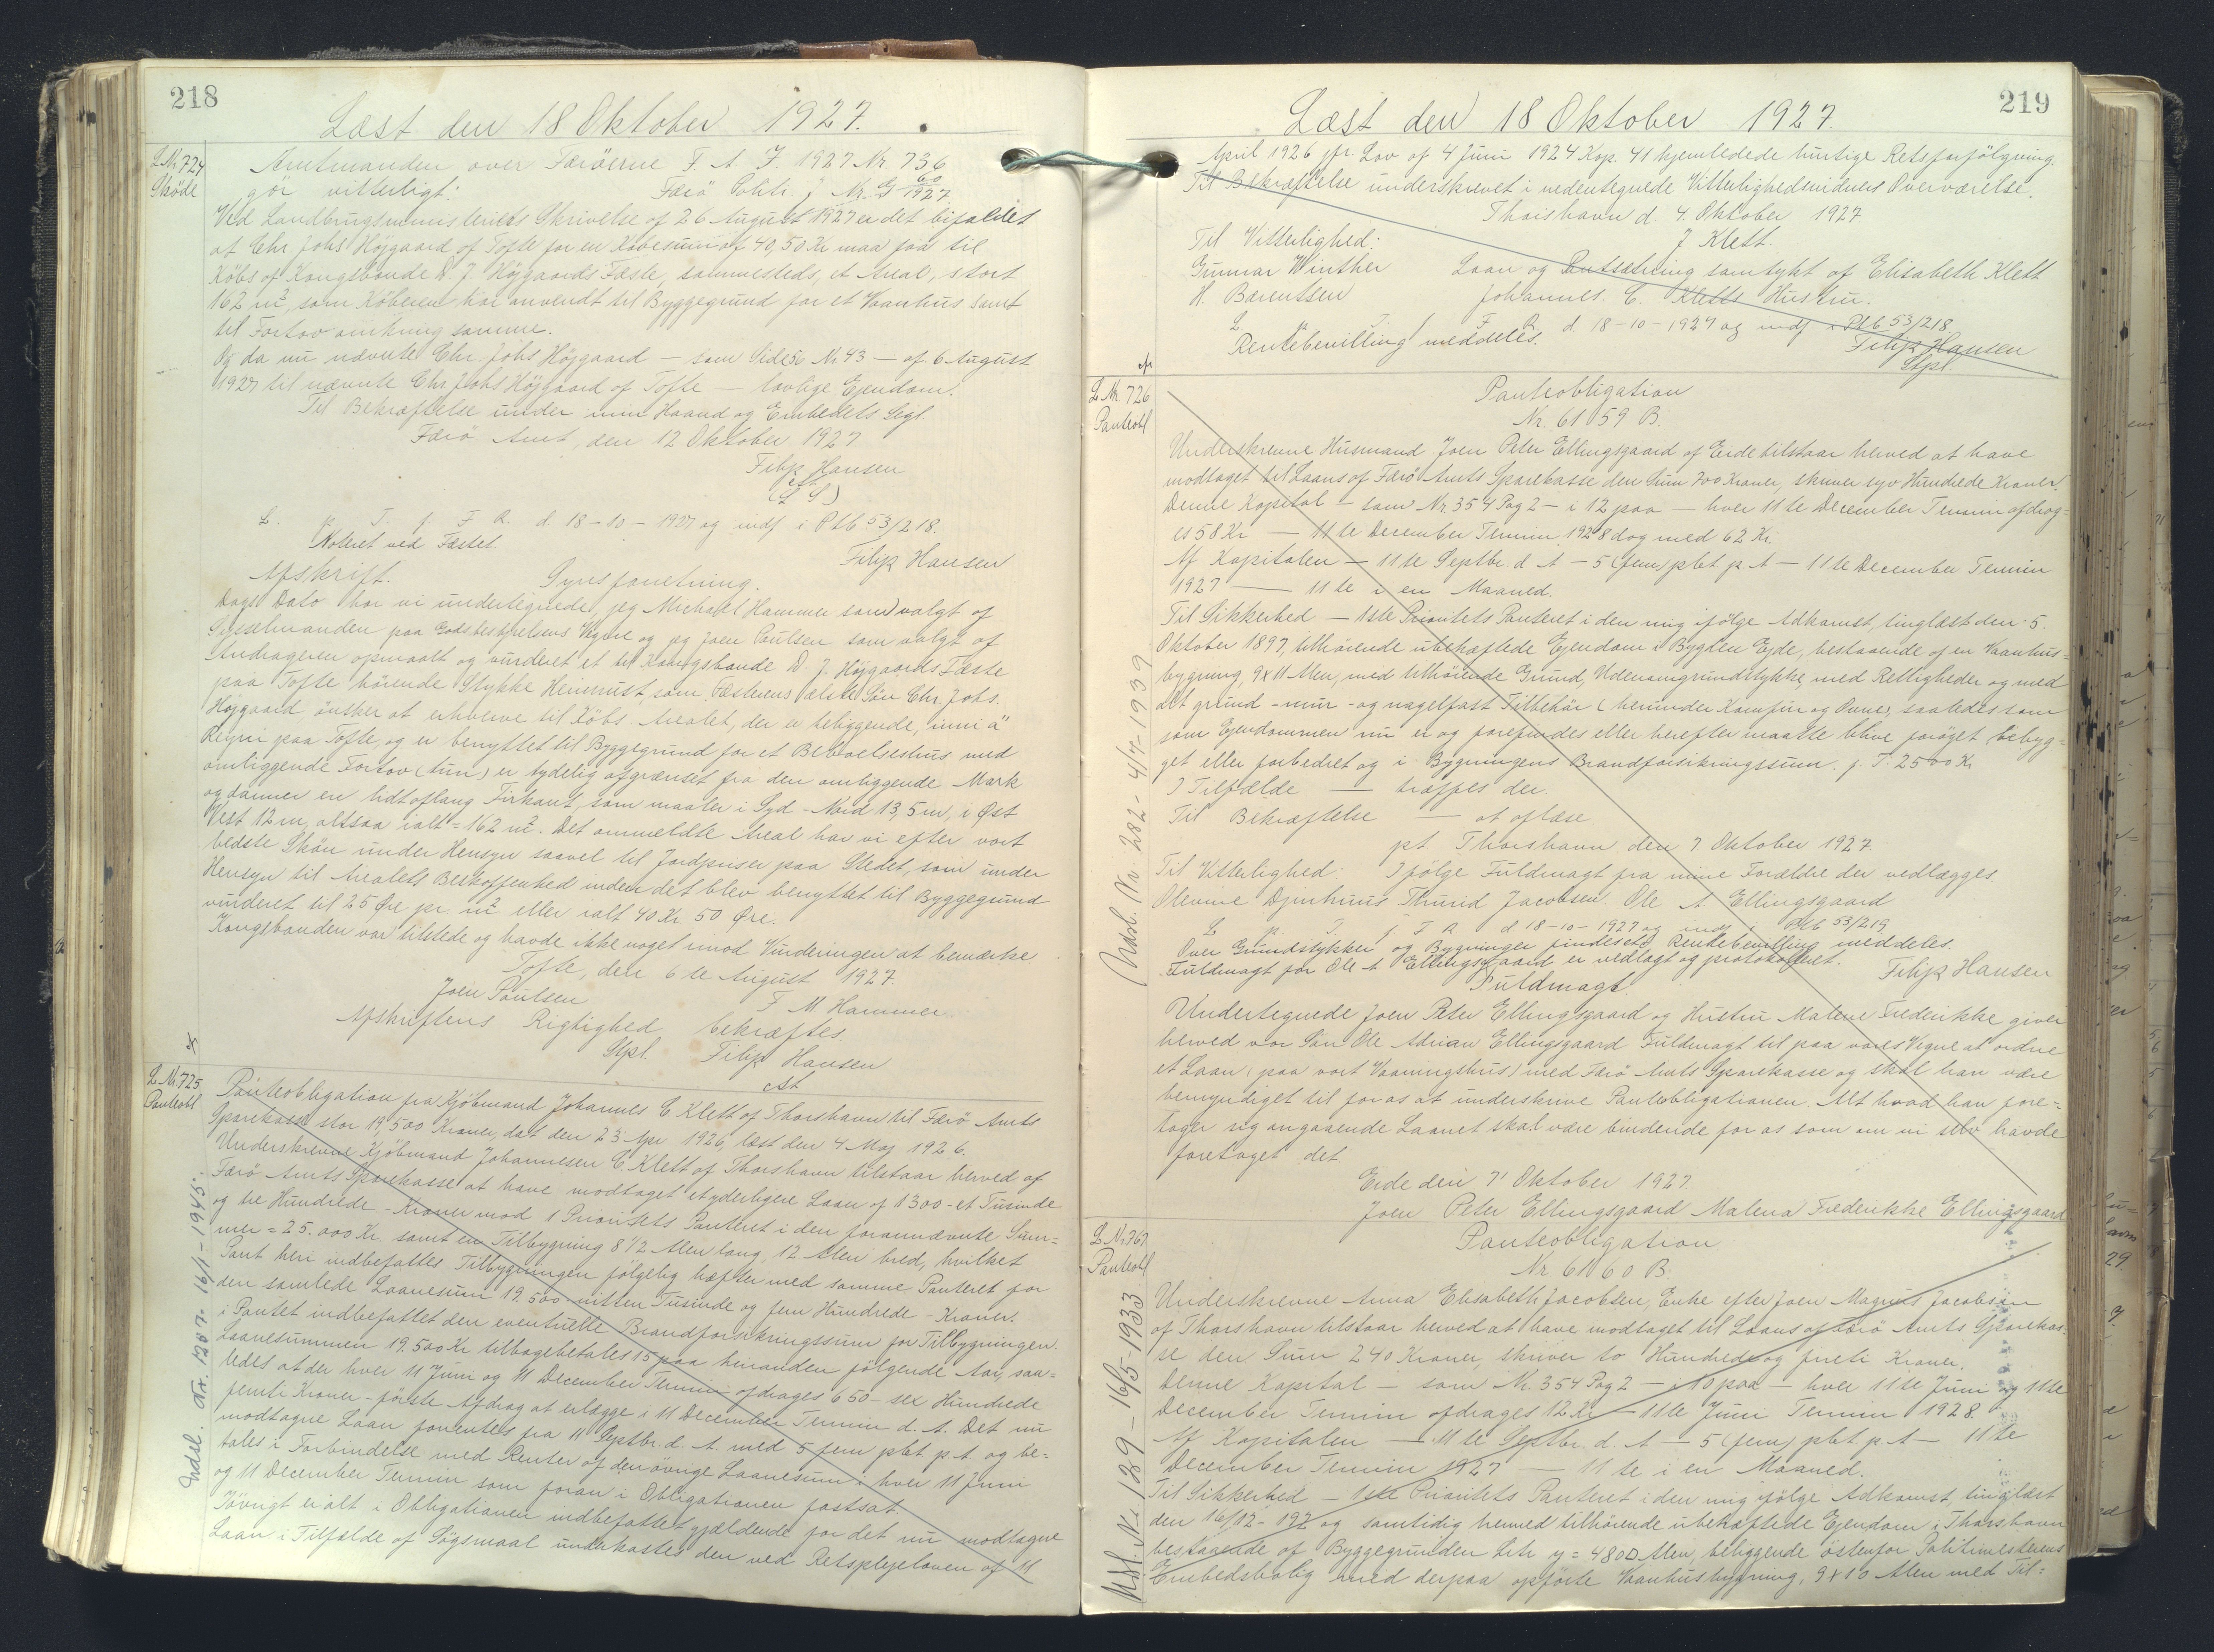 218
Læst den 18 Oktober 1927.
L Nr. 724
Sköde
Amtmanden over Færöerne F. A. J. 1927 Nr. 736
gör vitterligt: Færö Chtr. J. Nr. G 60/1927.
Ved Landbrugsministeriets Skrivelse af 26 August 1927 er det bifaldet
at Chr. Johs Höjgaard af Tofte for en Köbesum af 40,50 Kr maa faa til
Köbs af Kongsbonde D. J. Höjgaards Fæste, sammesteds, et Areal, stort
162 m², som Köberen har anvendt til Byggegrund for et Vaanhus samt
til Fortov omkring samme.
Og da nu nævnte Chr. Johs Höjgaard — som Side 50 Nr 43 — af 6 August
1927 til nævnte Chr Johs Höjgaard af Tofte — lovlige Ejendom.
Til Bekræftelse under min Haand og Embedets Segl.
Færö Amt, den 12 Oktober 1927
Filip Hansen
cst
(L S)
L. p. T. f. F R. d. 18-10-1927 og indf i Ptb 53/218.
Noteret ved Fæstet.
Filip Hansen
Afskrift. Synsforretning.
Dags Dato har vi undertegnede, jeg Michael Hammer som valgt af
Sysselmanden paa Godsbestyrelsens Vegne og jeg Joen Poulsen som valgt af
Andrageren opmaalt og vurderet et til Kongsbonde D. J. Höjgaards Fæste
paa Tofte hörende Stykke Heimrust, som Fæsterens ælste Sön Chr. Johs.
Höjgaard önsker at erhverve til Köbs. Arealet, der er beliggende, "inni á"
Reyni paa Tofte, og er benyttet til Byggegrund for et Beboelseshus med
omliggende Fortov (tun) er tydelig afgrænset fra den omliggende Mark
og danner en lidt aflang Firkant, som maaler i Syd-Nord 13,5 m, i Øst
Vest 12 m, altsaa ialt = 162 m². Det ommeldte Areal har vi efter vort
bedste Skön under Hensyn saavel til Jordpriser paa Stedet, som under
Hensyn til Arealets Beskaffenhed inden det blev benyttet til Byggegrund
vurderet til 25 Øre pr. m² eller ialt 40 Kr. 50 Øre.
Kongsbonden var tilstede og havde ikke noget imod Vurderingen at bemærke.
Tofte, den 6te August 1927.
Joen Poulsen F M Hammer
Afskriftens Rigtighed bekræftes.
Stpl. Filip Hansen
cst
L Nr. 725
Panteobl
Panteobligation fra Kjöbmand Johannes C Klett af Thorshavn til Færö Amts
Sparekasse stor 19,500 Kroner, dat den 23 Apr 1926, læst den 4 Maj 1926.
Underskrevne Kjöbmand Johannesen C Klett af Thorshavn tilstaar herved af
Færö Amts Sparekasse at have modtaget et yderligere Laan af 1300 - et Tusinde
og tre Hundrede - Kroner mod 1 Prioritets Panteret i den forannævnte Sum-
mer = 25.000 Kr. samt en Tilbygning 8 1/2 Alen lang, 12 Alen bred, hvilket
Pant heri indbefattes Tilbygningen fölgelig hæfter med samme Panteret for
den samlede Laanesum 19.500 nitten Tusinde og fem Hundrede - Kroner.
i Pantet indbefattet den eventuelle Brandforsikringssum for Tilbygningen.
Laanesummen 19.500 Kr tilbagebetales i 15 paa hinanden fölgende Aar, saa-
ledes at der hver 11 Juni og 11 December Termin afdrages 650 - sex Hundrede
femti Kroner - förste Afdrag at erlægge i 11 December Termin d. A. Det nu
modtagne Laan forrentes fra 11 Septbr. d. A. med 5 fem pCt p. A. og be-
tales i Forbindelse med Renter af den övrige Laanesum i hver 11 Juni
og 11 December Termin som foran i Obligationen fastsat.
Jövrigt er alt i Obligationen indbefattet gjældende for det nu modtagne
Laan i Tilfælde af Sögsmaal underkastes den ved Retsplejeloven af 11
Udsl. Nr. 1207. 16/1-1945.
219
Læst den 18 Oktober 1927.
April 1926 jfr. Lov af 4 Juni 1924 Kap. 41 hjemledede hurtige Retsforfölgning.
Til Bekræftelse underskrevet i nedentegnede Vitterlighedsvidners Overværelse.
Thorshavn d. 4. Oktober 1927
Til Vitterlighed: J Klett.
Gunnar Winther Laan og Pantsætning samtykt af Elisabeth Klett
H. Barentsen Johannes. C. Kletts Hustru.
L. p. T. f. F R. d. 18-10-1927 og indf i Ptb 53/218
Rentebevilling meddeles. Filip Hansen
Stpl
L Nr. 726
Panteobl
Panteobligation
Nr. 61059 B.
Underskrevne Husmand Joen Peter Ellingsgaard af Eide tilstaar herved at have
modtaget til Laans af Færö Amts Sparekasse den Sum 700 Kroner, skriver syv Hundrede Kroner.
Denne Kapital — som Nr 354 Pag 2 — i 12 paa — hver 11te December Termin afdrag-
es 58 Kr — 11te December Termin 1928 dog med 62 Kr.
Af Kapitalen — 11te Septbr. d A — 5 (fem) pCt p A — 11te December Termin
1927 — 11te i en Maaned.
Til Sikkerhed — 1ste Prioritets Panteret i den mig ifölge Adkomst, tinglæst den 5.
Oktober 1897, tilhörende ubehæftede Ejendom i Bygden Ejde, bestaaende af en Vaanhus-
bygning, 9x11 Alen, med tilhörende Grund, Udenomgrundstykke, med Rettigheder og med
alt grund -mur -og nagelfast Tilbehör (herunder Komfur og Ovne, saaledes som
som Ejendommen nu er og forefindes eller herefter maatte blive foröget, bebyg-
get eller forbedret og i Bygningens Brandforsikringssum. p. T. 2500 Kr
I Tilfælde — træffes der.
Til Bekræftelse — at oplæse.
pt. Thorshavn den 7 Oktober 1927.
Til Vitterlighed: Ifölge Fuldmagt fra mine Forældre der vedlægges
Olevine Djurhuus Thurid Jacobsen. Ole A Ellingsgaard
L p. T. f F R d 18-10-1927 og indf i Ptb 53/219
Over Grundstykker og Bygninger findes Rentebevilling meddeles.
Fuldmagt for Ole A. Ellingsgaard er vedlagt og protokolleret. Filip Hansen
Fuldmagt
Undertegnede Joen Peter Ellingsgaard og Hustru Malene Frederikke giver
herved vor Sön Ole Adrian Ellingsgaard Fuldmagt til paa vores Vegne at ordne
et Laan (paa vort Vaaningshus) med Færö Amts Sparekasse og skal han være
bemyndiget til for os at underskrive Panteobligationen. Alt hvad han fore-
tager sig angaaende Laanet skal være bindende for os som om vi selv havde
foretaget det.
Eide den 7' Oktober 1927.
Joen Peter Ellingsgaard Malena Frederikke Ellingsgaard
Udsl. Nr. 282 - 4/7-1939
L Nr 767
Panteobl
Panteobligation
Nr. 61060 B.
Underskrevne Anna Elisabeth Jacobsen, Enke efter Joen Magnus Jacobsen
af Thorshavn tilstaar herved at have modtaget til Laans af Færö Amts Sparekas-
se den Sum 240 Kroner, skriver to Hundrede og fireti Kroner.
Denne Kapital — som Nr. 354 Pag 2 — i 10 paa — hver 11te Juni og 11te
December Termin afdrages 12 Kr — 11te Juni Termin 1928.
Af Kapitalen — 11te Septbr. d. A — 5 (fem) pCt. p. A — 11te
December Termin 1927 — 11te i en Maaned.
Til Sikkerhed — 1ste Prioritets Panteret i den mig ifölge Adkomst, tinglæst
den 16/12-192 og samtidig hermed tilhörende ubehæftede Ejendom i Thorshavn
bestaaende af Byggegrunden Litr y = 480 □ Alen, beliggende östenfor Politimesterens
Embedsbolig med derpaa opförte Vaanhusbygning, 9x10 Alen med Til-
Udsl. Nr 129 - 16/5-1933